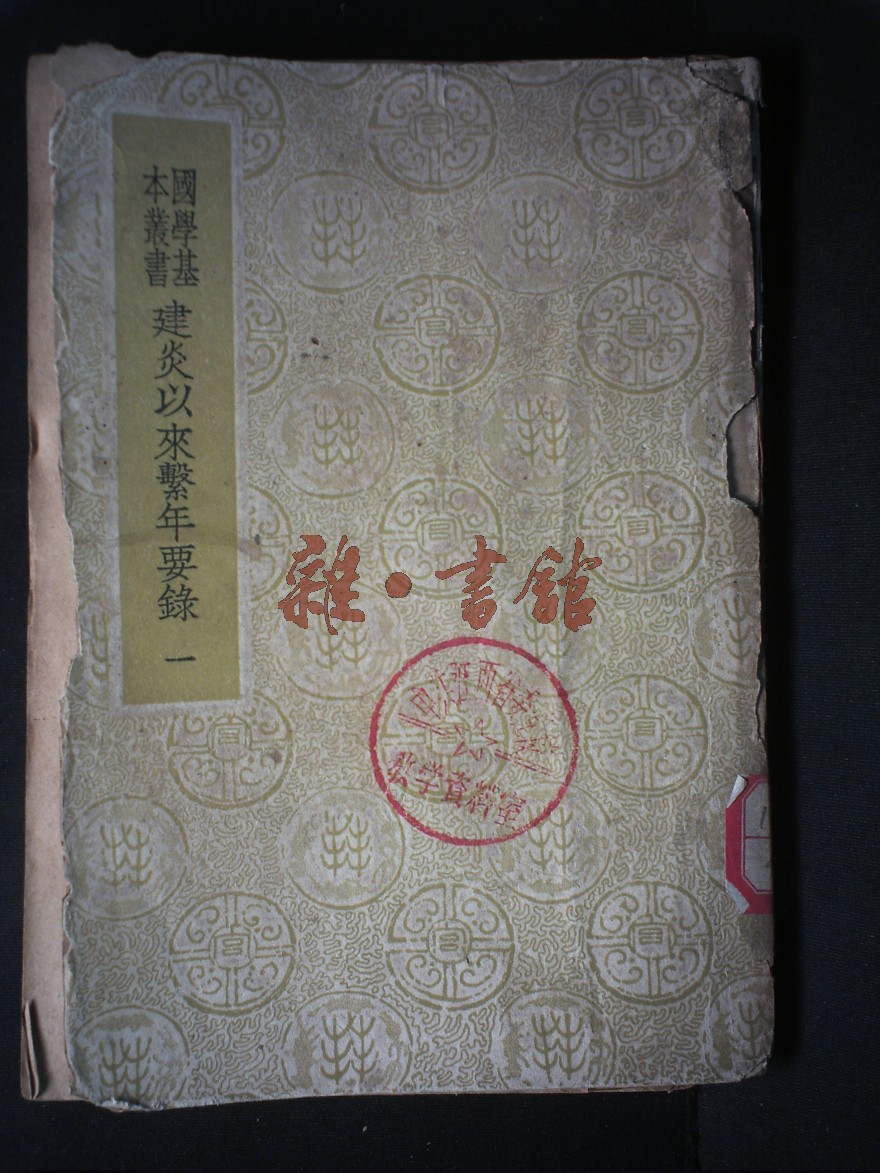 國學基
本叢書
建炎以來繫年要錄 一
雜·書館
教學資料室